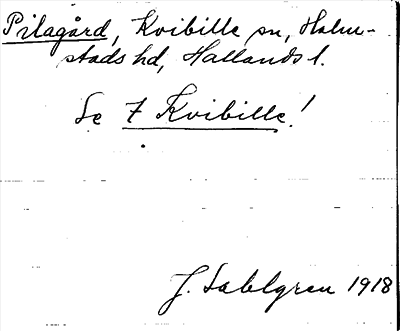 Pilagård, Kvibille sn, Halm-
stads hd, Hallands l.
Se 7 Kvibille!
J. Sahlgren 1918